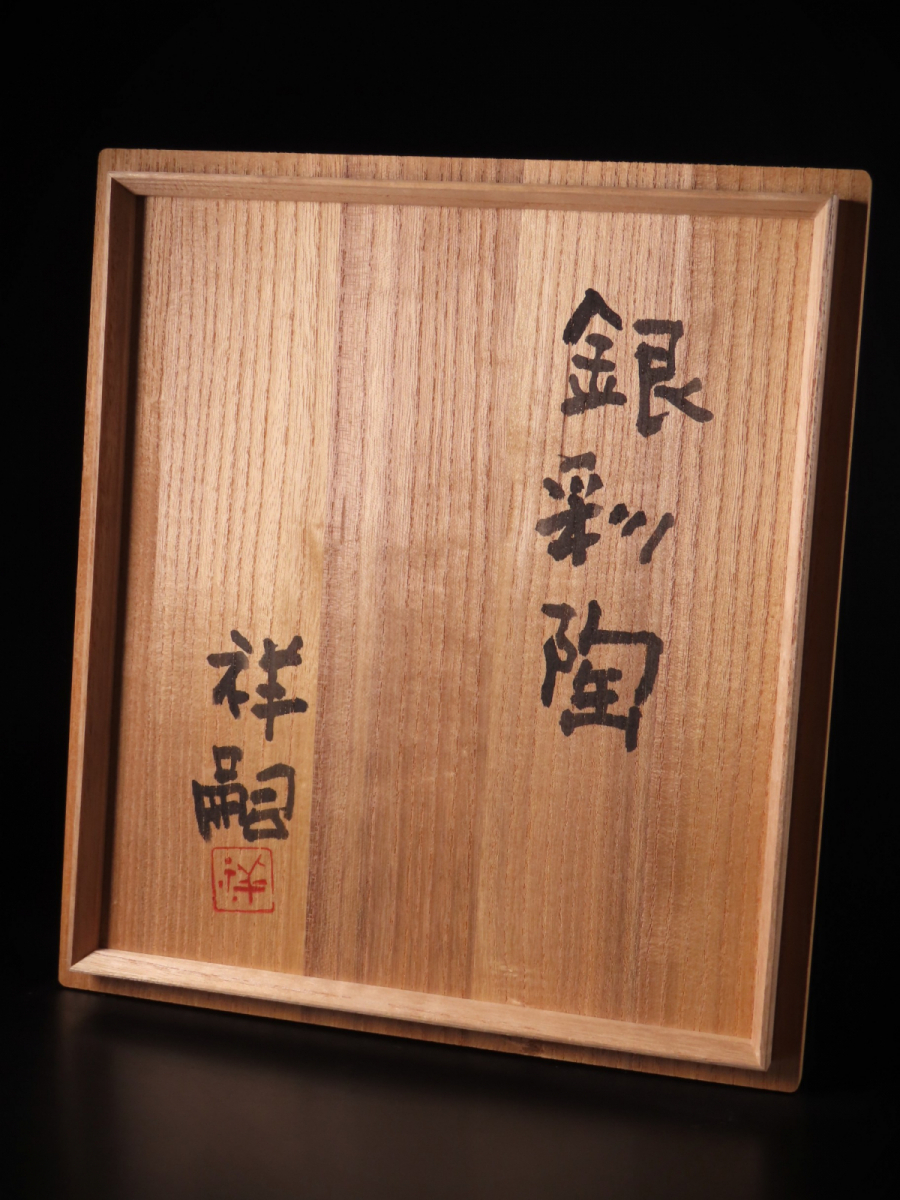 銀彩陶
祥嗣